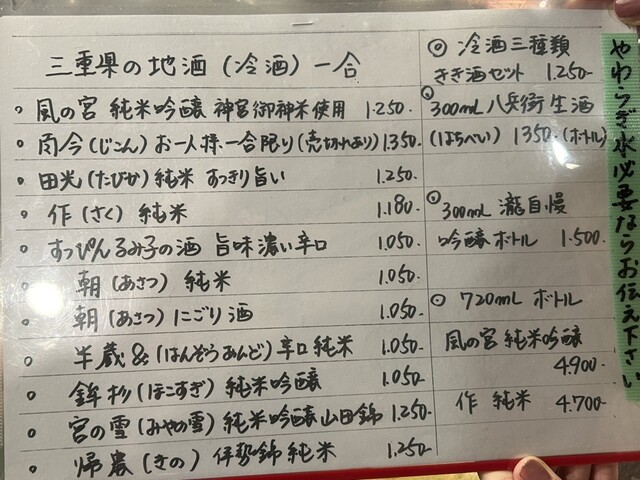 三重県の地酒(冷酒)一合
◦ 風の宮 純米吟醸 神宮御神米使用 1.250-
◦ 而今(じこん)お一人様一合限り(売切れあり) 1.350-
◦ 田光(たびか)純米 すっきり旨い 1.250-
◦ 作(さく)純米 1.180-
◦ すっぴんるみ子の酒 旨味濃い辛口 1.050-
◦ 朝(あさつ)純米 1.050-
◦ 朝(あさつ)にごり酒 1.050-
◦ 半蔵&(はんぞうあんど)辛口純米 1.050-
◦ 鉾杉(ほこすぎ)純米吟醸 1.050-
◦ 宮の雪(みやの雪)純米吟醸山田錦 1.250-
◦ 帰農(きの)伊勢錦純米 1.250-
◎ 冷酒三種類
きき酒セット 1.250-
◎ 300mL 八兵衛 生酒
(はちべい) 1350.(ボトル)
◎ 300mL 瀧自慢
吟醸ボトル 1.500-
◎ 720mL ボトル
風の宮 純米吟醸
4.900-
作 純米 4.700-
やわらぎ水必要ならお伝え下さい